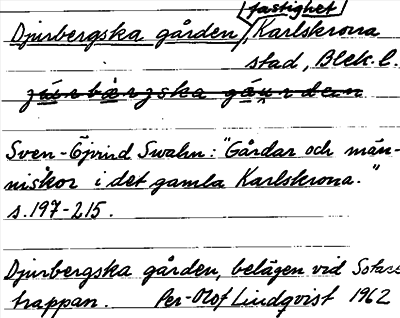 fastighet
Djurbergska gården, Karlskrona
stad, Blek. l.
Sven-Öjvind Swahn: "Gårdar och män-
niskor i det gamla Karlskrona."
s. 197-215.
Djurbergska gården, belägen vid
trappan. Per-Olof Lindqvist 1962